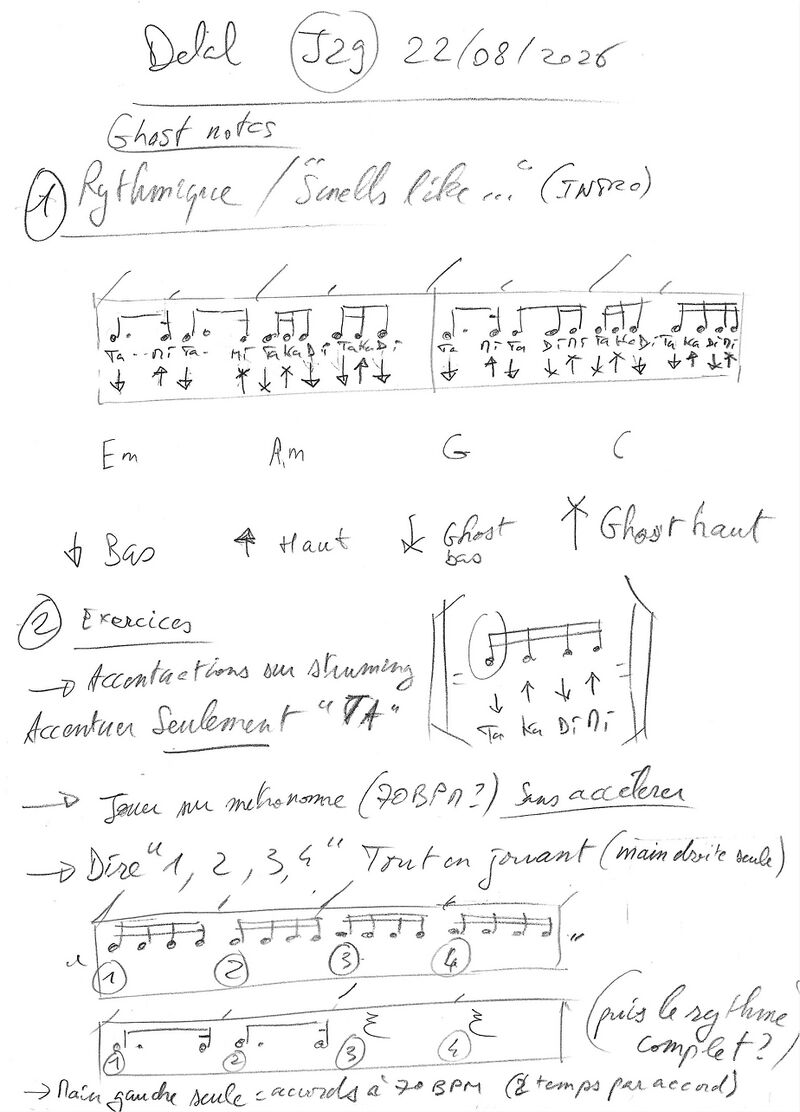 Delal J29 22/08/2026
Ghost notes
1 Rythmique / "Smells like ..." (INTRO)
Ta Mi Ta Mi Ta Ka Di Ta Ka Di Ta Mi Ta Di Mi Ta Ka Di Ta Ka Di Mi
Em Am G C
Bas Haut Ghost bas Ghost haut
2 Exercices
→ Accentuations sur struming
Accentuer Seulement "TA"
Ta Ka Di Mi
→ Jouer sur métronome (70BPM?) Sans accélérer
→ Dire "1, 2, 3, 4" Tout en jouant (main droite seule)
" 1 2 3 4 "
1 2 3 4
(puis le rythme
complet?)
→ Main gauche seule = accords à 70 BPM (2 temps par accord)